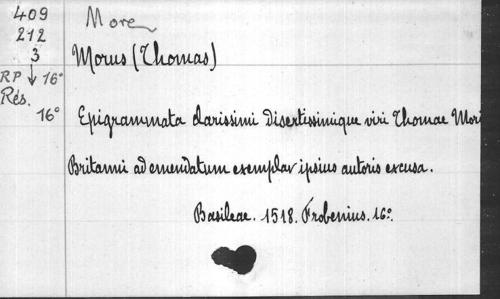 409
212
3
RP ↓ 16°
Rés.
16°
More
Morus (Thomas)
Epigrammata clarissimi disertissimique viri Thomae Mori
Britanni ad emendatum exemplar ipsius autoris excusa.
Basileae. 1518. Frobenius. 16°.